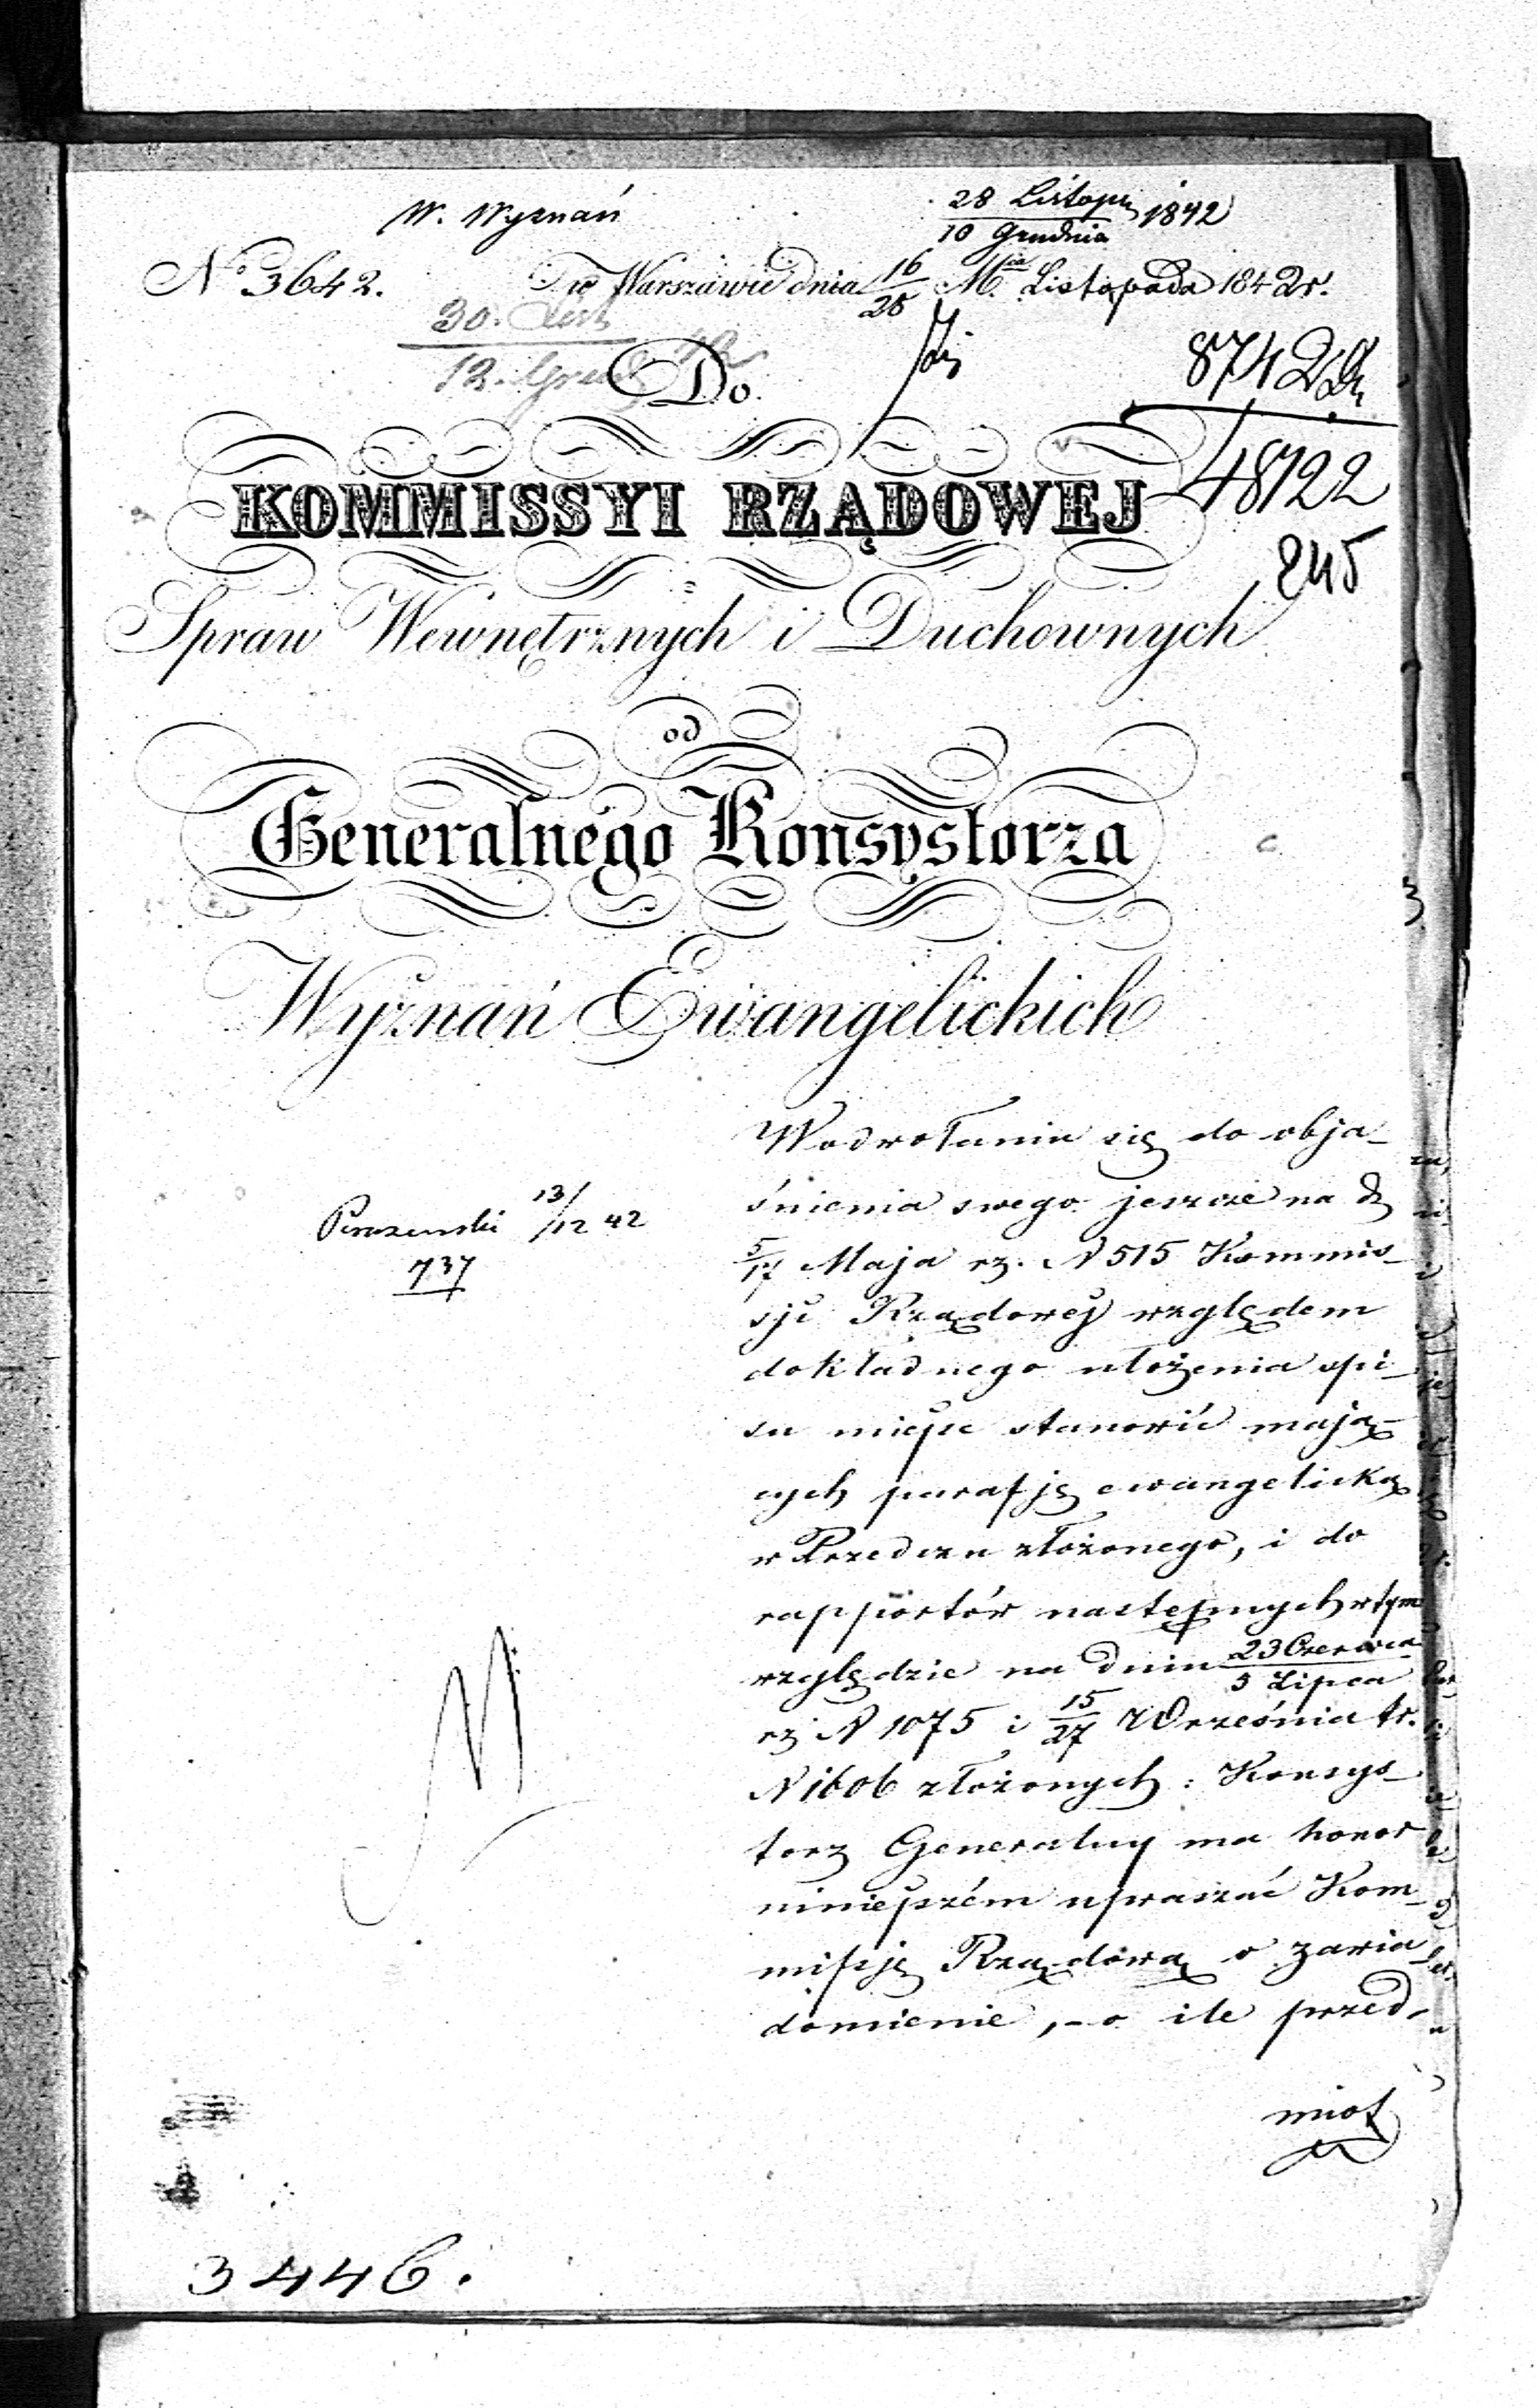 W. Wyznań
28 Listop 1842
10 Grudnia
No 3642.
w Warszawie dnia 16/28 Mca Listopada 1842 r.
30.
12. Grud
Do
8742
48122
245
KOMMISSYI RZĄDOWEJ
Spraw Wewnętrznych i Duchownych
od
Generalnego Konsystorza
Wyznań Ewangelickich
13/12 42
737
W odwołaniu się do obja-
śnienia swego jeszcze na d
5/17 Maja rz. N 515 Kommis-
sji Rządowej względem
dokładnego ułożenia spi-
su miejsc stanowić mają-
cych parafję ewangelicką
w Przedczu złożonego, i do
rapportów następnych w tym
względzie na dniu 23 Czerwca
5 Lipca
rz N 1075 i 15/27 Września tr.
N 1606 złożonych: Konsys-
torz Generalny ma honor
niniejszém upraszać Kom-
missję Rządową o zawia-
domienie, - o ile przed-
miot
3446.